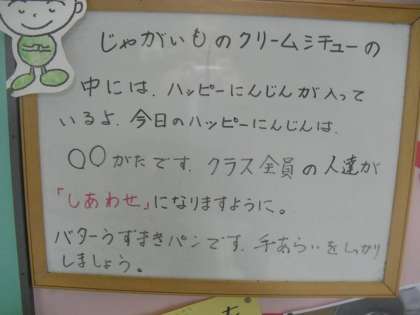 じゃがいものクリームシチューの
中には、ハッピーにんじんが入って
いるよ。今日のハッピーにんじんは、
○○がたです。クラス全員の人達が
「しあわせ」になりますように。
バターうずまきパンです。手あらいをしっかり
しましょう。